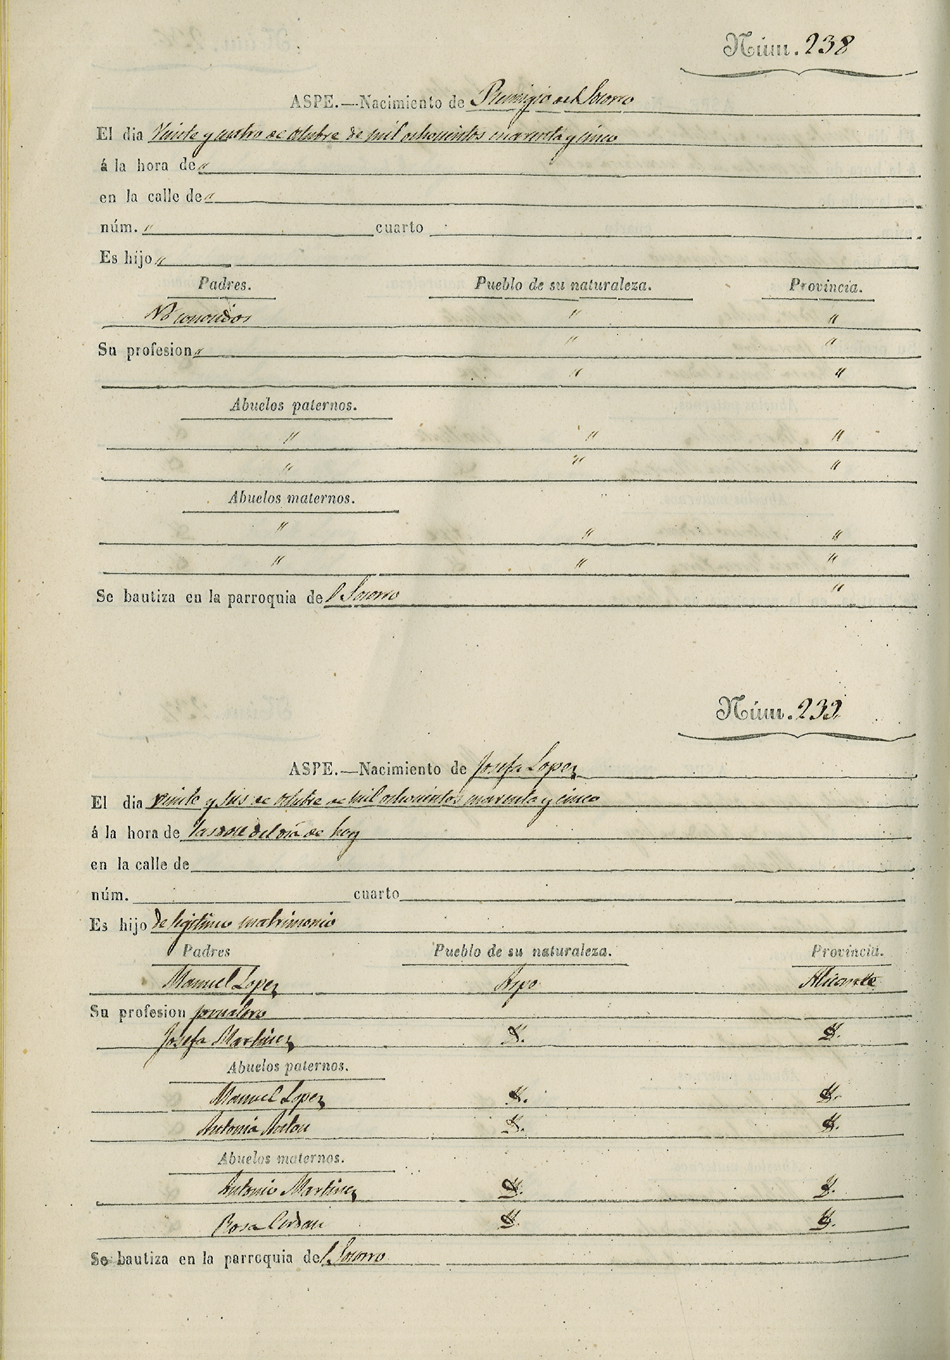 Núm. 238
ASPE.—Nacimiento de Remigio del Socorro
El dia Veinte y cuatro de octubre de mil ochocientos cuarenta y cinco
á la hora de "
en la calle de "
núm. " cuarto
Es hijo "
Padres. Pueblo de su naturaleza. Provincia.
No conocidos " "
Su profesion " " "
" "
Abuelos paternos.
" " "
" " "
Abuelos maternos.
" " "
" " "
Se bautiza en la parroquia del Socorro "
Núm. 239
ASPE.—Nacimiento de Josefa Lopez
El dia veinte y seis de octubre de mil ochocientos cuarenta y cinco
á la hora de las doce del dia de hoy
en la calle de
núm. cuarto
Es hijo de legitimo matrimonio
Padres Pueblo de su naturaleza. Provincia.
Manuel Lopez Aspe Alicante
Su profesion jornalero
Josefa Martinez id. id.
Abuelos paternos.
Manuel Lopez id. id.
Antonia id. id.
Abuelos maternos.
Antonio Martinez id. id.
Rosa Cerdan id. id.
Se bautiza en la parroquia del Socorro